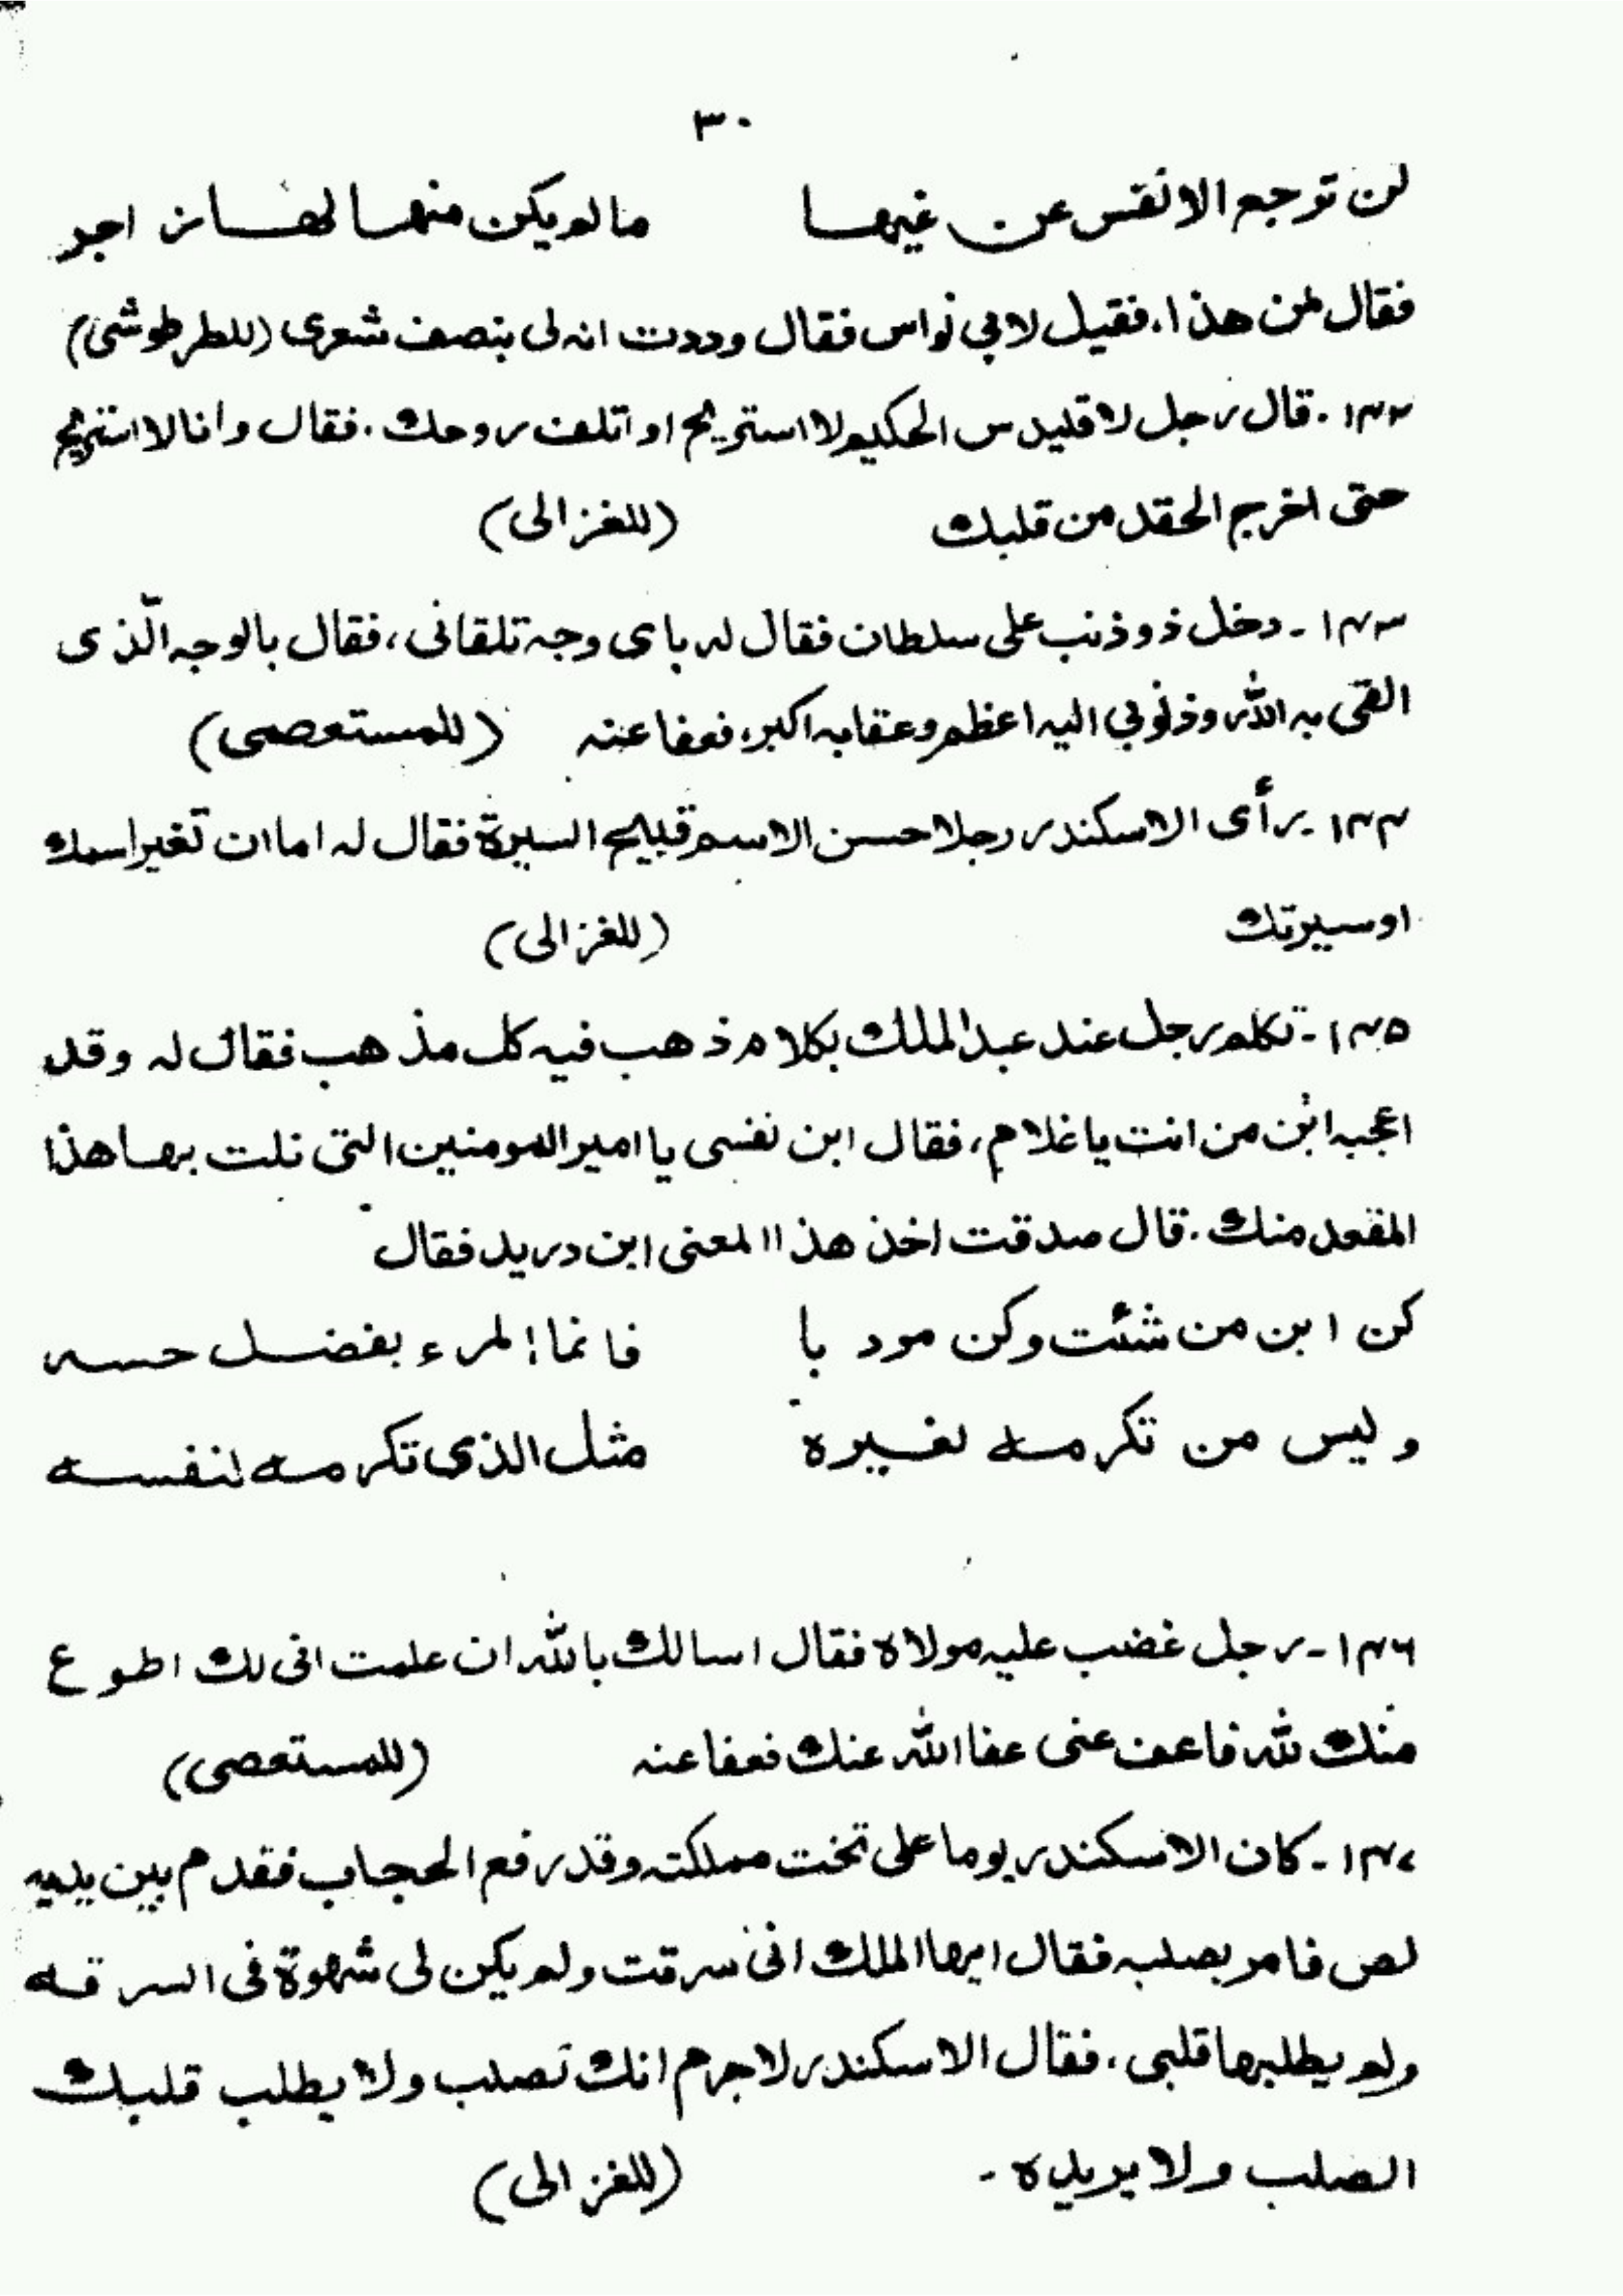 ٣٠
لن ترجع الانفس عن غيها مالم يكن منها لها زاجر
فقال لمن هذا، فقيل لابي نواس فقال وددت انه لى بنصف شعرى (للطرطوشى)
١٣٢ - قال رجل لاقليدس الحكيم لا استريح او اتلف روحك . فقال وانا لا استريح
حتى اخرج الحقد من قلبك (للغزالى)
١٣٣ - دخل ذو ذنب على سلطان فقال له باى وجه تلقانى، فقال بالوجه الّذى
القى به الله وذنوبي اليه اعظم وعقابه اكبر، فعفا عنه (للمستعصمى)
١٣٤ - رأى الاسكندر رجلا حسن الاسم قبيح السيرة فقال له اما ان تغير اسمك
او سيرتك (للغزالى)
١٣٥ - تكلم رجل عند عبد الملك بكلام ذهب فيه كل مذهب فقال له وقد
اعجبه ابن من انت يا غلام، فقال ابن نفسى يا امير المومنين التى نلت بها هذا
المقعد منك . قال صدقت اخذ هذا المعنى ابن دريد فقال
كن ابن من شئت وكن مودبا فانما المرء بفضل حسه
وليس من تكرمه لغيره مثل الذى تكرمه لنفسه
١٣٦ - رجل غضب عليه مولاه فقال اسالك بالله ان علمت انى لك اطوع
منك لله فاعف عنى عفا الله عنك فعفا عنه (للمستعصى)
١٣٧ - كان الاسكندر يوما على تخت مملكته وقد رفع الحجاب فقدم بين يديه
لص فامر بصلبه فقال ايها الملك انى سرقت ولم يكن لى شهوة فى السرقه
ولم يطلبها قلبى . فقال الاسكندر لا جرم انك تصلب ولا يطلب قلبك
الصلب ولا يريده - (للغزالى)